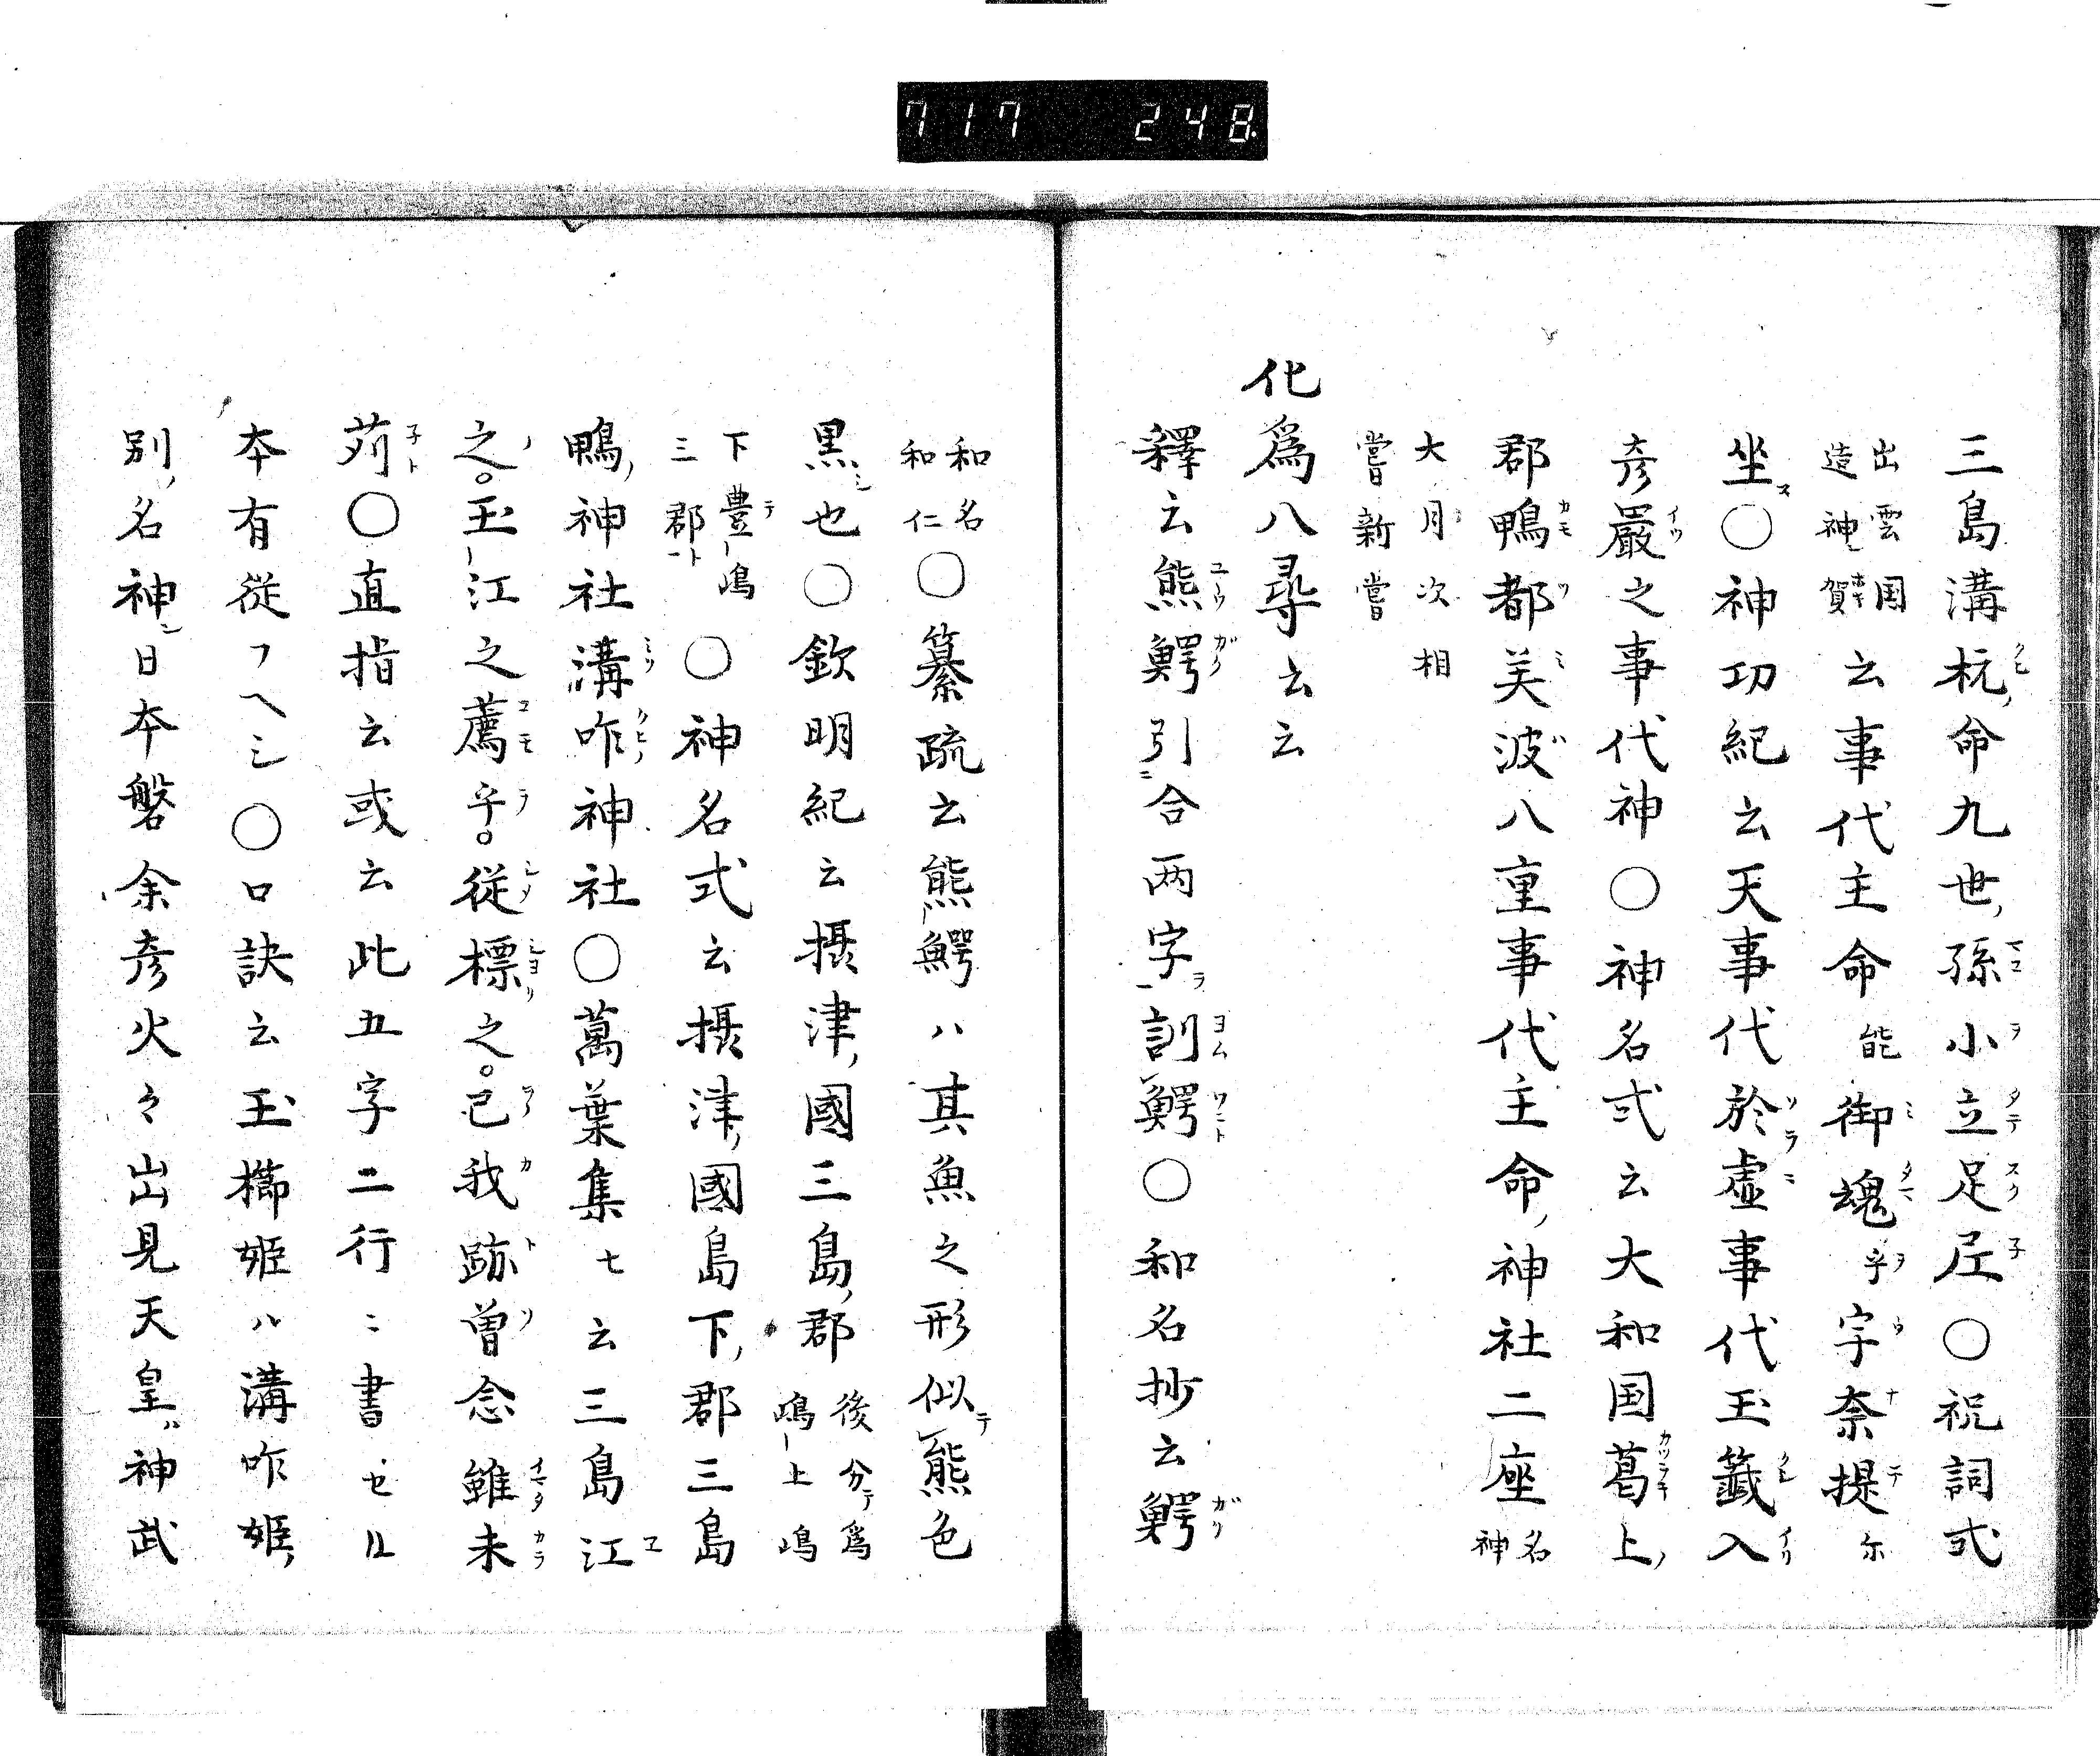 717 248
三島溝杭命九世孫小立足尼〇祝詞式
出雲国造神賀云事代主命能御魂乎宇奈提尓
坐〇神功紀云天事代於虚事代玉籤入
彦嚴之事代神〇神名式云大和国葛上
郡鴨都美波八重事代主命神社二座名神
大月次相嘗新嘗
化爲八尋云云
釋云熊鰐引合两字訓鰐〇和名抄云鰐
和名和仁〇纂疏云熊鰐ハ其魚之形似熊色
黒也〇欽明紀云摂津國三島郡後分テ爲嶋上嶋
下豊嶋三郡〇神名式云摂津國島下郡三島
鴨神社溝咋神社〇萬葉集七云三島江
之。玉江之薦乎。従標之。己我跡曽念雖未
苅〇直指云或云此五字二行ニ書セル
本有従フヘシ〇口訣云玉櫛姫ハ溝咋姫
別名神日本磐余彦火々出見天皇ハ神武